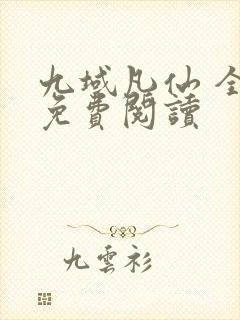 九域凡仙 全
免費閱讀
九雲衫